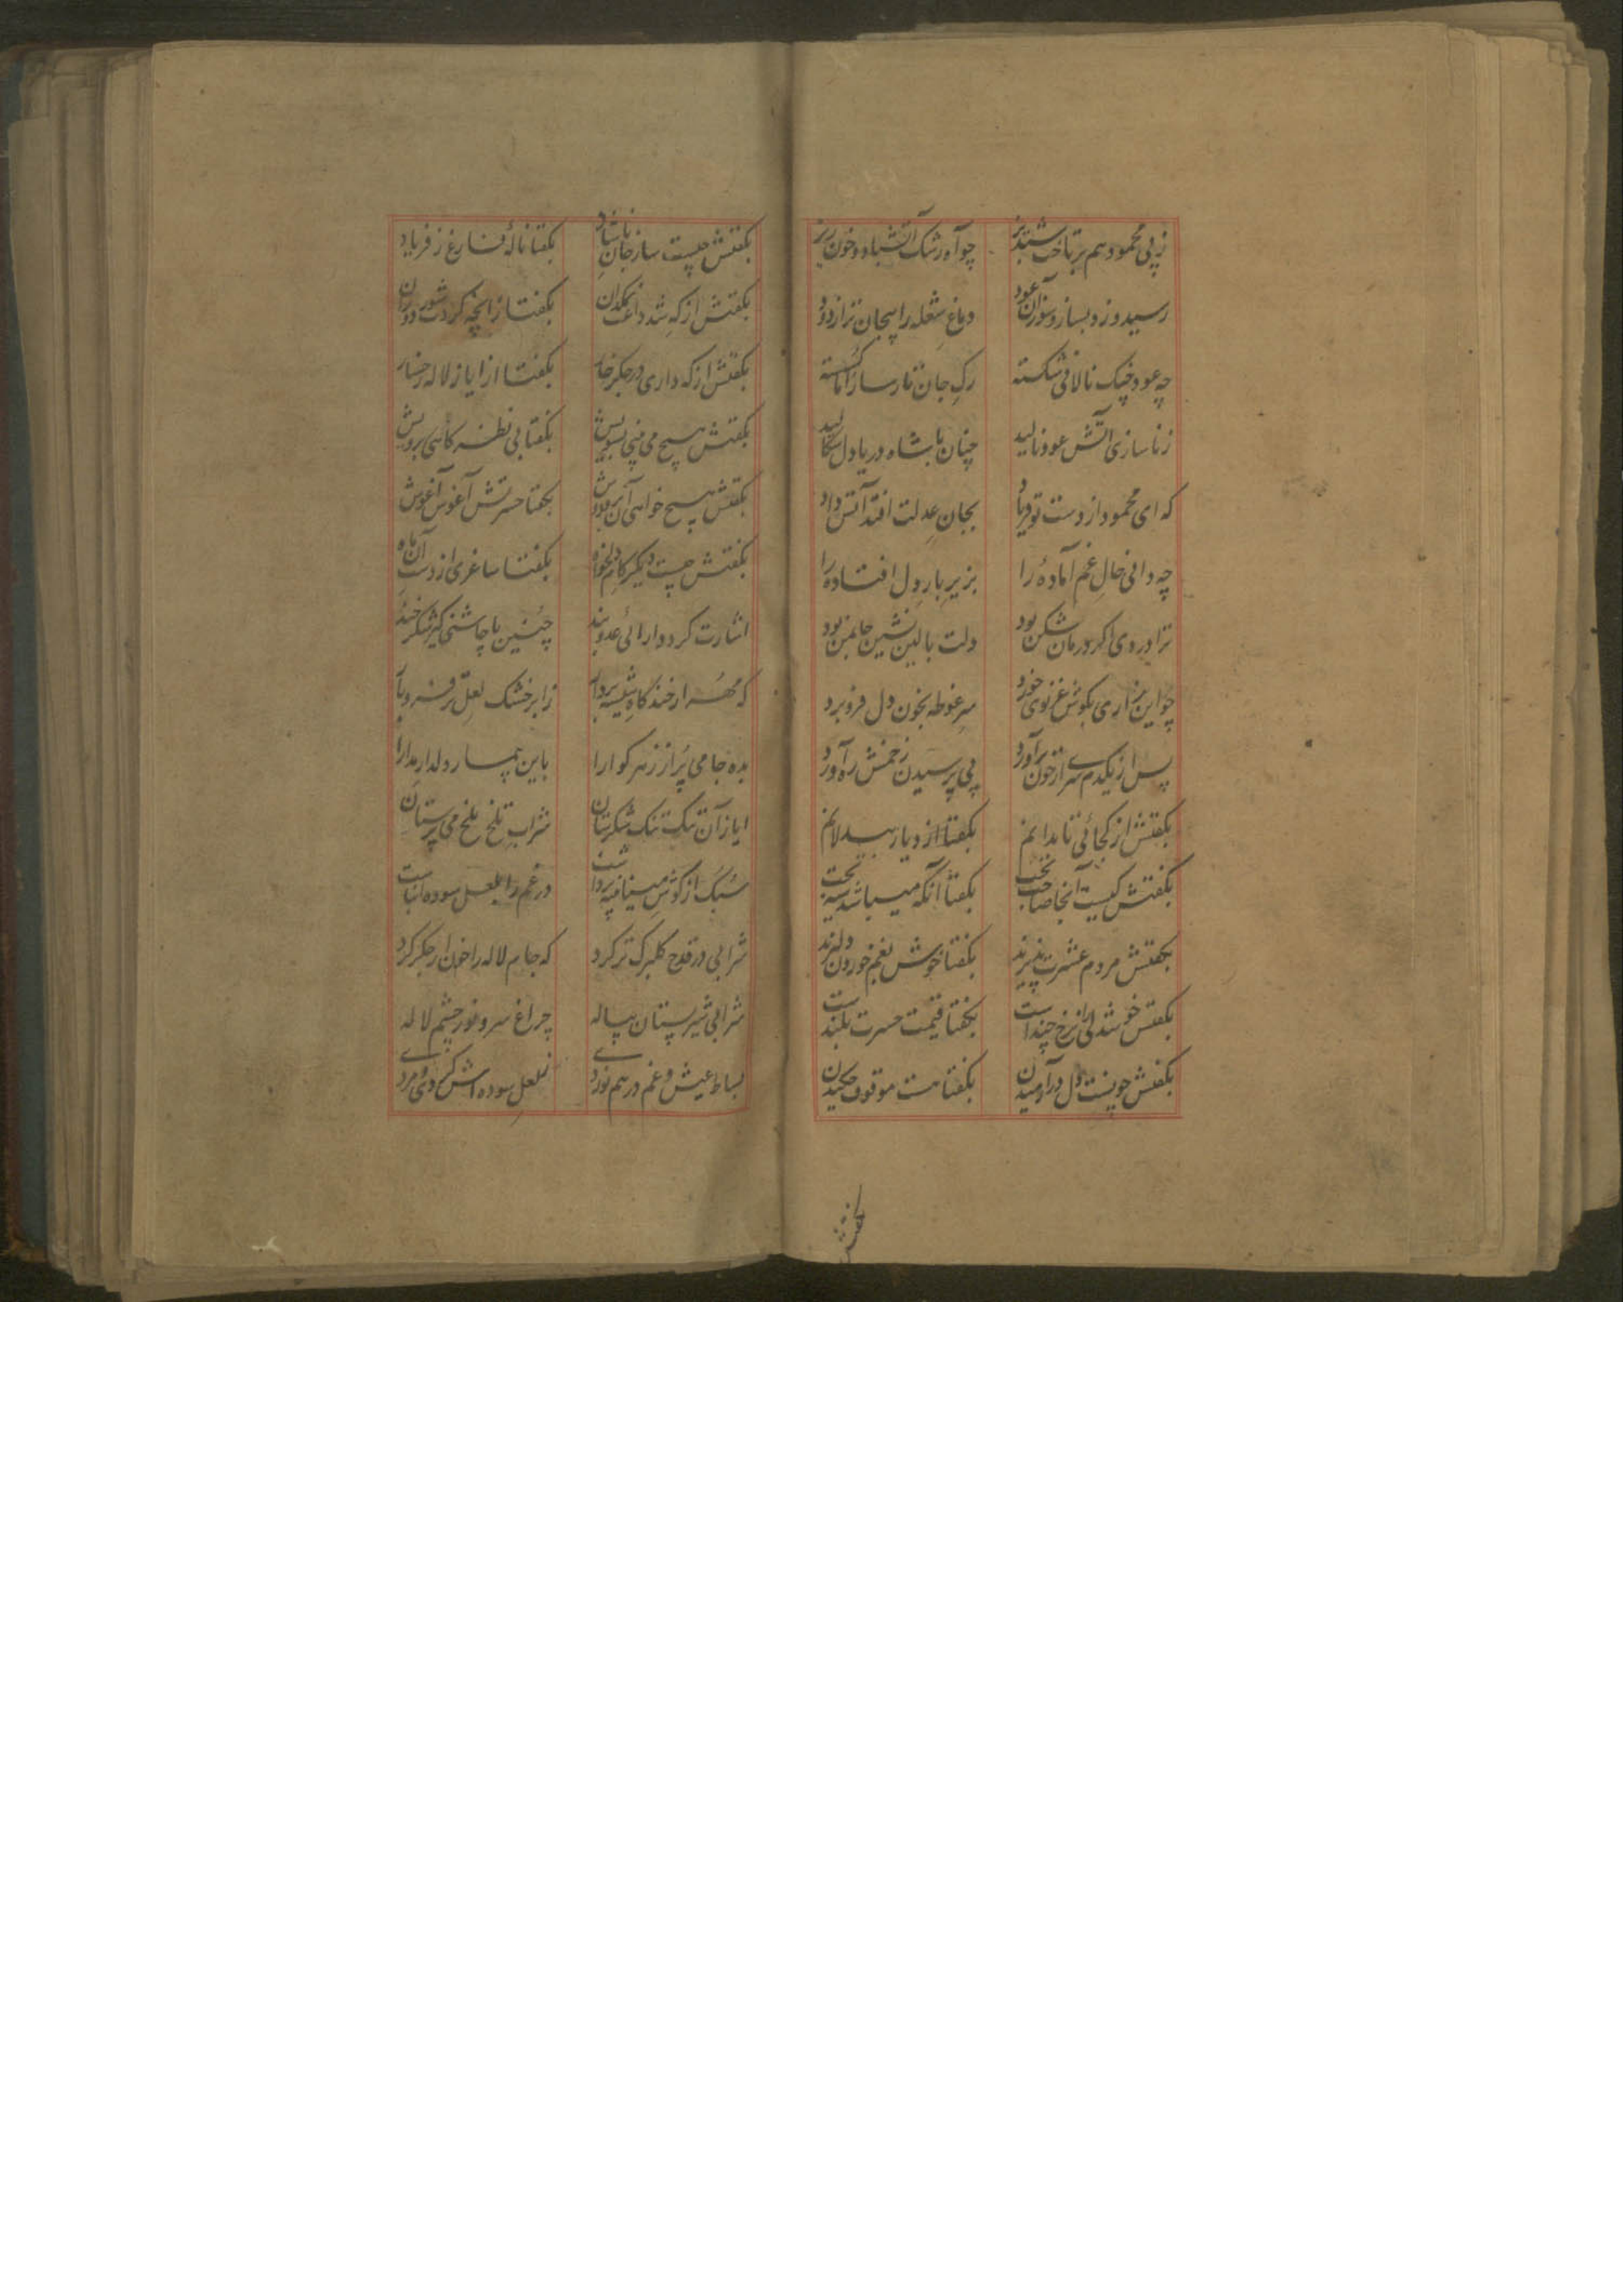 ز پی محمود هم برتاخت شبدیز چو آه و رشک آتشبار و خون ریز
رسید و زد بساز و سوز آن عود دماغ شعله را پیچان تر از دود
چه عود و چنگ نالانی شکسته رگ جان تار ساز اما گسسته
ز ناسازی آتش عود نالید چنان با شاه دریادل سگالید
که ای محمود از دست تو فریاد بجان عدلت افتد آتش داد
چه دانی حال غم آماده را بزیر بار دل افتاده را
ترا دردی اگر درمان شکن بود دلت بالین نشین جان من بود
چو این زاری بگوش غزنوی خورد سر غوطه بخون دل فرو برد
پس از یکدم سری از خون برآورد پی پرسیدن زخمش ره آورد
بگفتش از کجائی تا بدانم بگفتا از دیار بیدلانم
بگفتش کیست آنجا صاحب تخت بگفتا آنکه میباشد سیه بخت
بگفتش مردم عشرت پذیرند بگفتا خوش بغم خوردن دلیرند
بگفتش خوشدلی را نرخ چند است بگفتا قیمت حسرت بلند است
بگفتش چونست دل در آرمیدن بگفتا هست موقوف چکیدن
بگفتش
بگفتش چیست ساز جان ناشاد بگفتا نالهٔ فارغ ز فریاد
بگفتش از که شد داغت نمکدان بگفتا زانچه کردت شور دوران
بگفتش از که داری در جگر خار بگفتا از ایاز لاله رخسار
بگفتش هیچ می بینی بسویش بگفتا بی نظر گاهی برویش
بگفتش هیچ خواهی آن بر و دوش بگفتا حسرتش آغوش آغوش
بگفتش چیست دیگر کام دلخواه بگفتا ساغری از دست آن ماه
اشارت کرد دارائی عدو بند چنین با چاشنی گیر شکرخند
که مهر از خندگاه شیشه بردار ز ابر خشک لعل تر فرو بار
بده جامی پر از زهر گوارا باین بیمار دلدار مدارا
ایاز آن تنگ تنگ شکرستان شراب تلخ تلخ می پرستان
سبک از گوش مینا پنبه برداشت در غم را بلعل سوده انباشت
شرابی در قدح گلبرگ تر کرد که جام لاله را خون از جگر کرد
شرابی شیر پستان پیاله چراغ سرو نور چشم لاله
بساط عیش و غم در هم نوردی ز لعل سوده اشک دی مردی